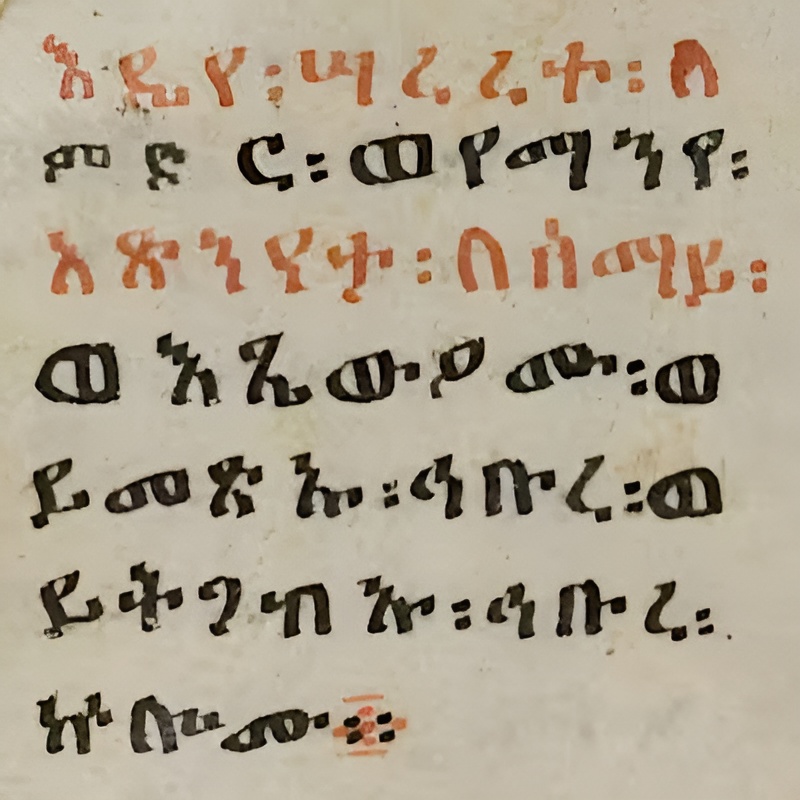 እዴየ፡ሣረረት፡ለ
ምድር፡ወየማንየ፡
በሰማይ፡
ወእጼውዖሙ፡ወ
ይመጽኡ፡ኅቡረ፡ወ
ይትጋብኡ፡ኅቡረ፡
ኵሎሙ፨